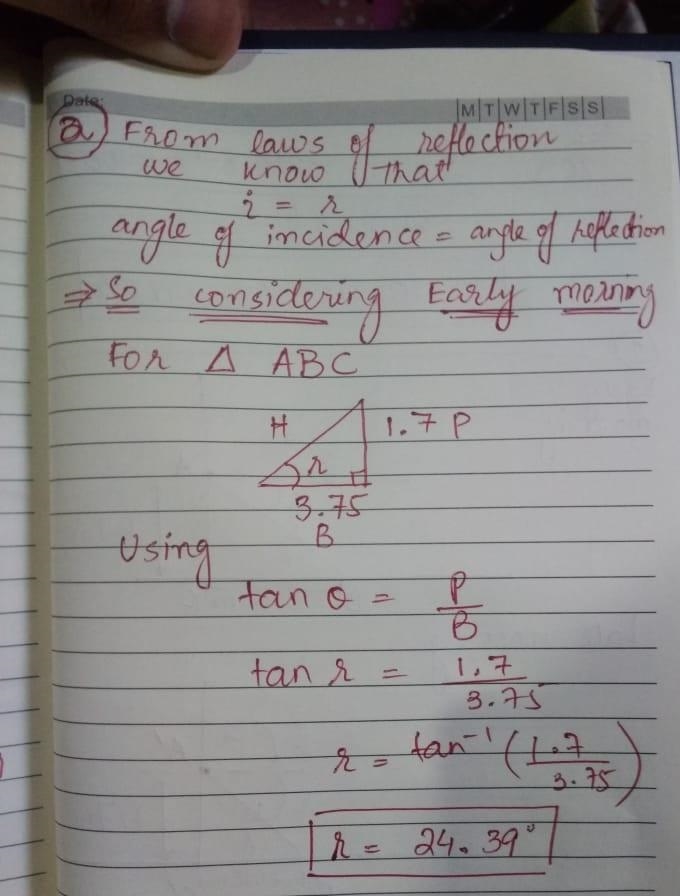 Date:
M T W T F S S
(a) From laws of reflection
we know that
i = r
angle of incidence = angle of reflection
⇒ So considering Early morning
For Δ ABC
H 1.7 P
r
3.75
B
Using
tan θ = P/B
tan r = 1.7/3.75
r = tan⁻¹ (1.7/3.75)
r = 24.39°